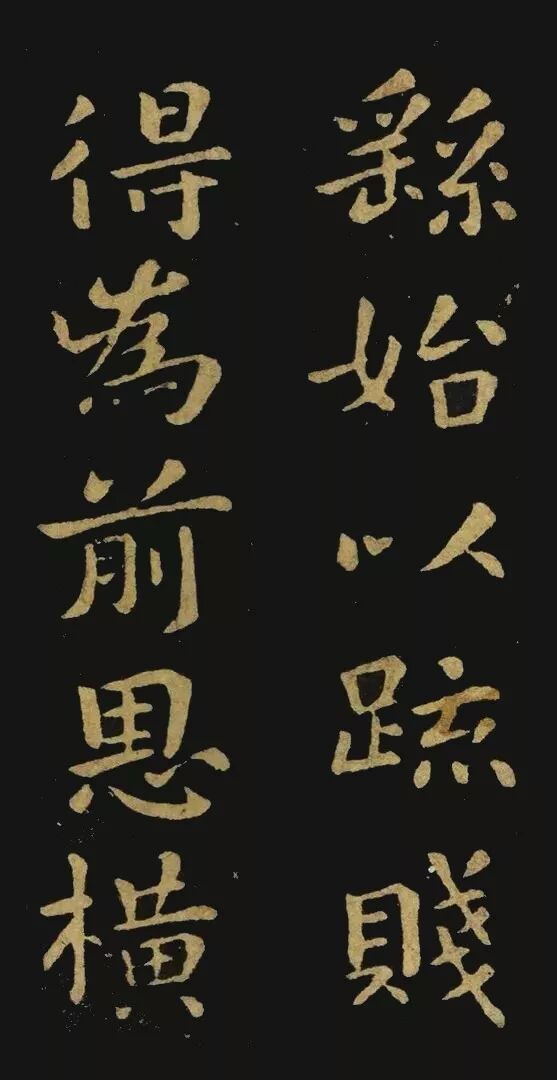 繇始以䟽賤
得為前恩橫